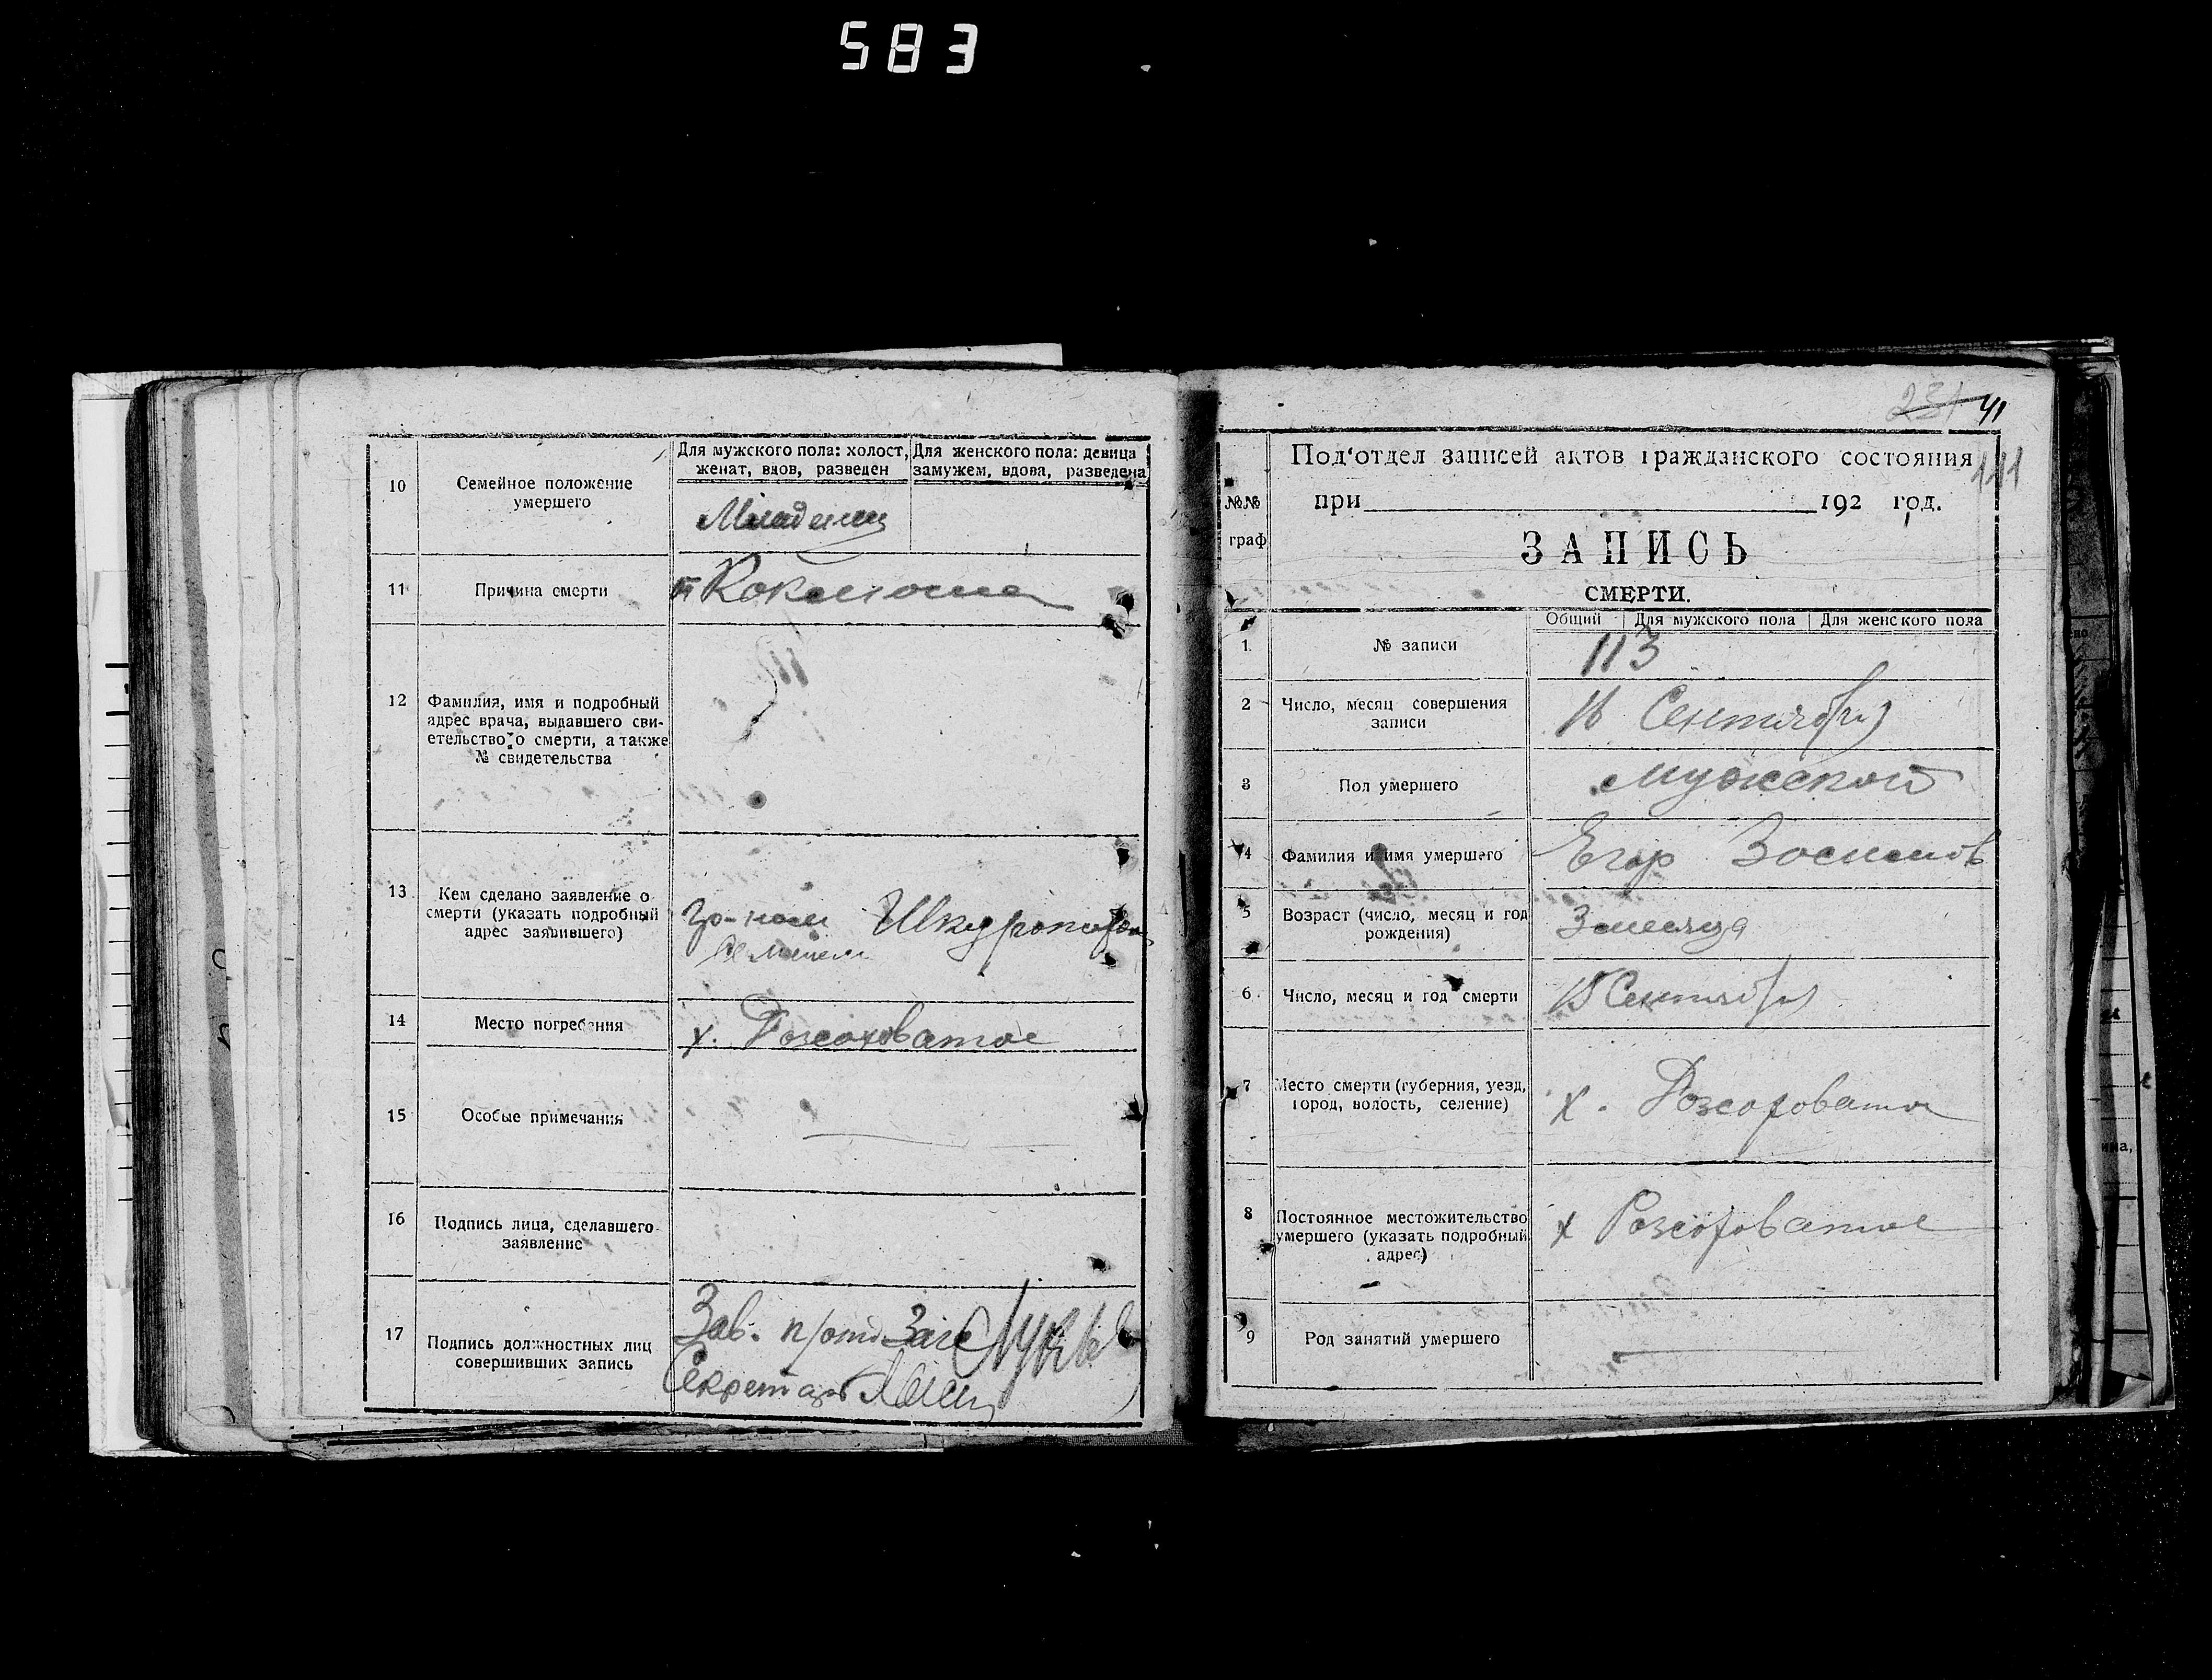 583
10
Семейное положение
умершего
Для мужского пола: холост,
женат, вдов, разведен
Для женского пола: девица
замужем, вдова, разведена
Младенец
11
Причина смерти
12
Фамилия, имя и подробный
адрес врача, выдавшего сви-
етельство о смерти, а также
№ свидетельства
13
Кем сделано заявление о
смерти (указать подробный
адрес заявившего)
14
Место погребения
х. Розсоховатое
15
Особые примечания
16
Подпись лица, сделавшего
заявление
17
Подпись должностных лиц
совершивших запись
Зав. п/отд Загс
Секретарь
231 41
141
№№
граф
Под'отдел записей актов гражданского состояния
при 192 год.
ЗАПИСЬ
СМЕРТИ.
Общий Для мужского пола Для женского пола
1
№ записи
113
2
Число, месяц совершения
записи
16 Сентября
3
Пол умершего
мужской
4
Фамилия и имя умершего
Егор
5
Возраст (число, месяц и год
рождения)
3 месяца
6
Число, месяц и год смерти
15 Сентября
7
Место смерти (губерния, уезд,
город, волость, селение)
х. Розсоховатое
8
Постоянное местожительство
умершего (указать подробный
адрес)
х Розсоховатое
9
Род занятий умершего